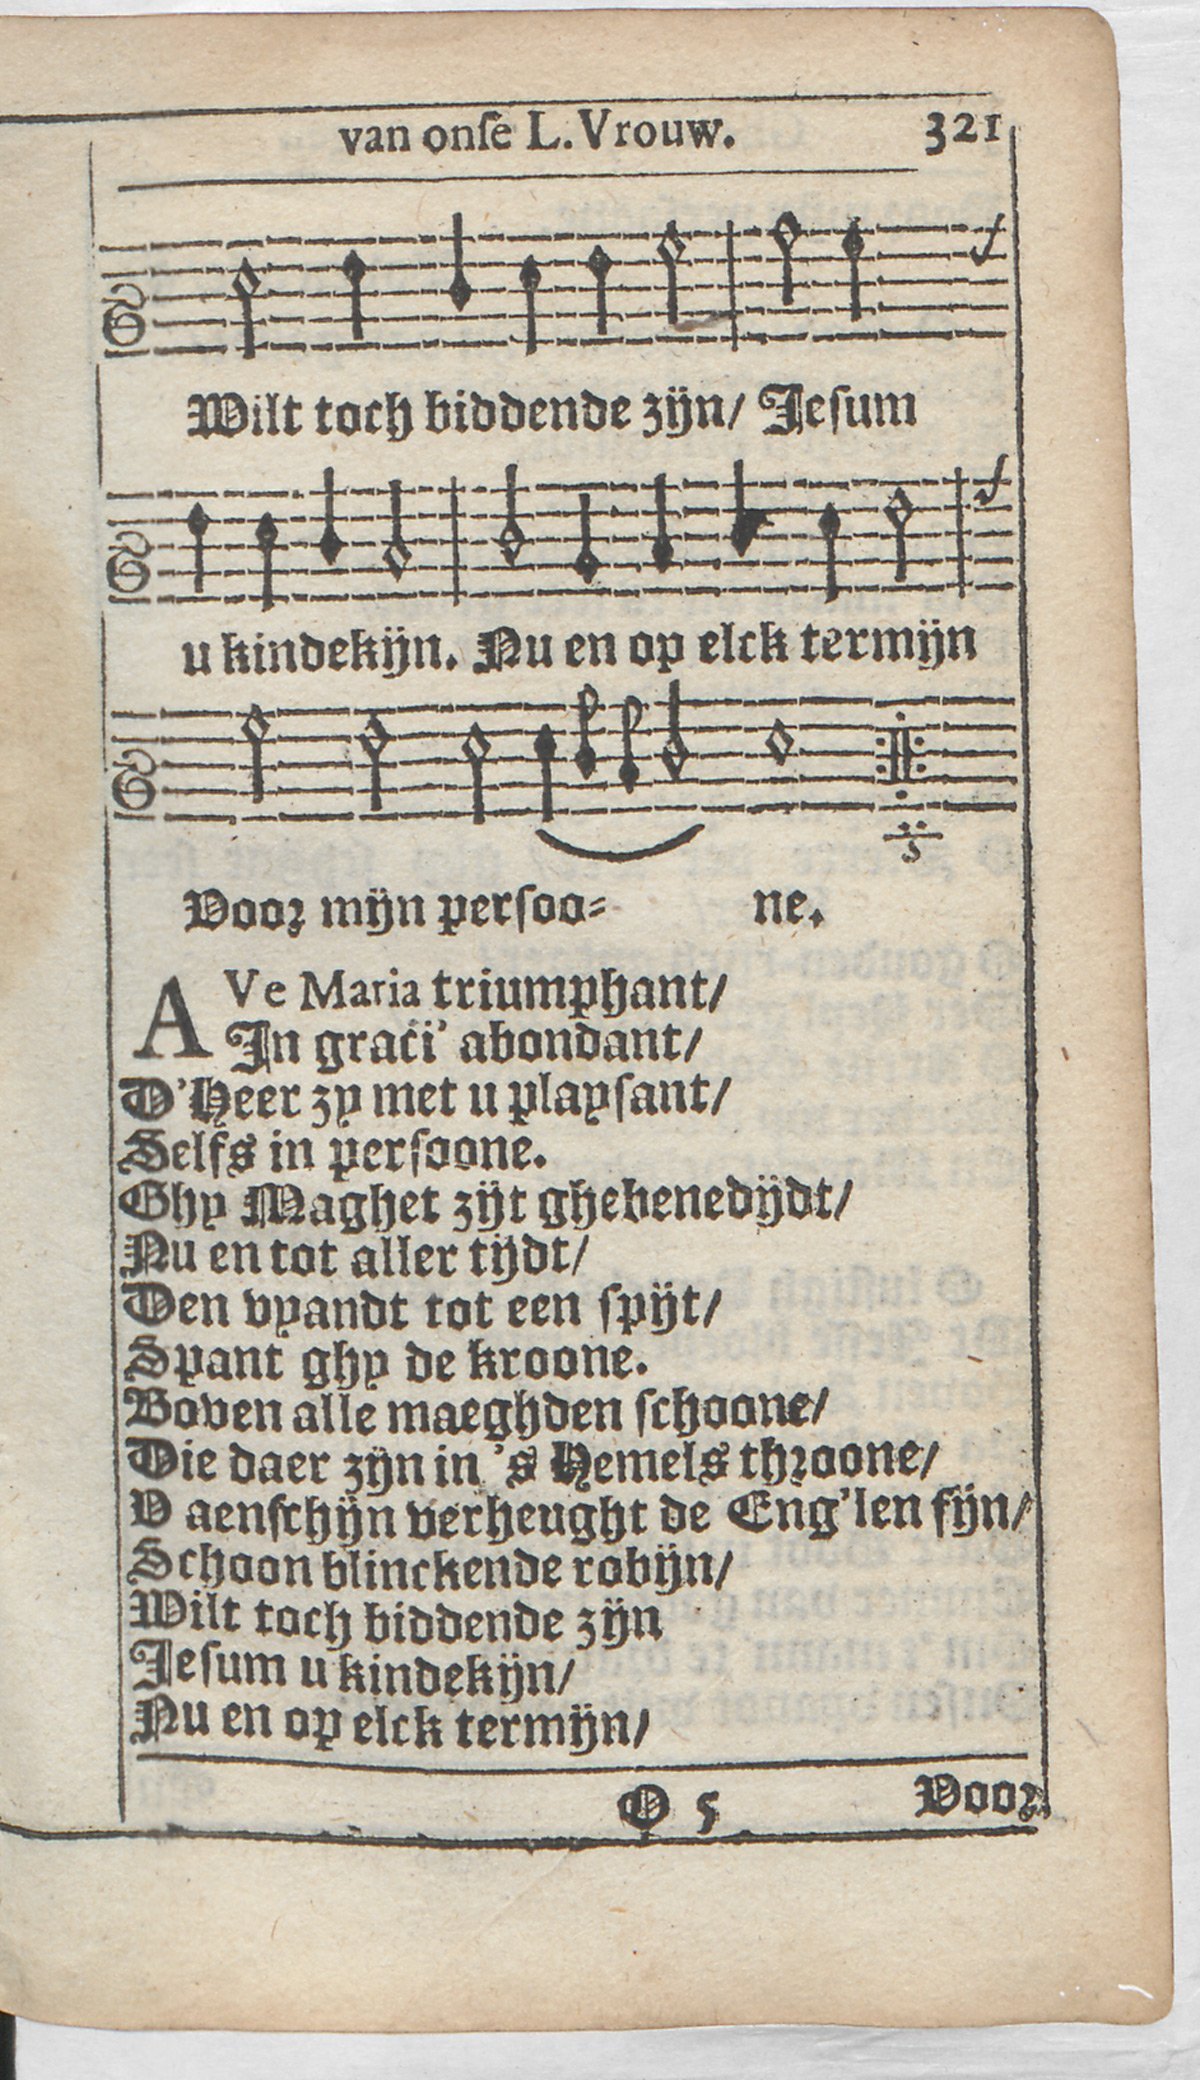 van onse L. Vrouw. 321
Wilt toch biddende zijn/ Jesum
u kindekijn. Nu en op elck termijn
Voor mijn persoo= ne.
AVe Maria triumphant/
In graci' abondant/
D'Heer zy met u playsant/
Selfs in persoone.
Ghy Maghet zijt ghebenedijdt/
Nu en tot aller tijdt/
Den vyandt tot een spijt/
Spant ghy de kroone.
Boven alle maeghden schoone/
Die daer zijn in 's Hemels throone/
V aenschijn verheught de Eng'len fijn/
Schoon blinckende robijn/
Wilt toch biddende zijn
Jesum u kindekijn/
Nu en op elck termijn/
O 5 Voor